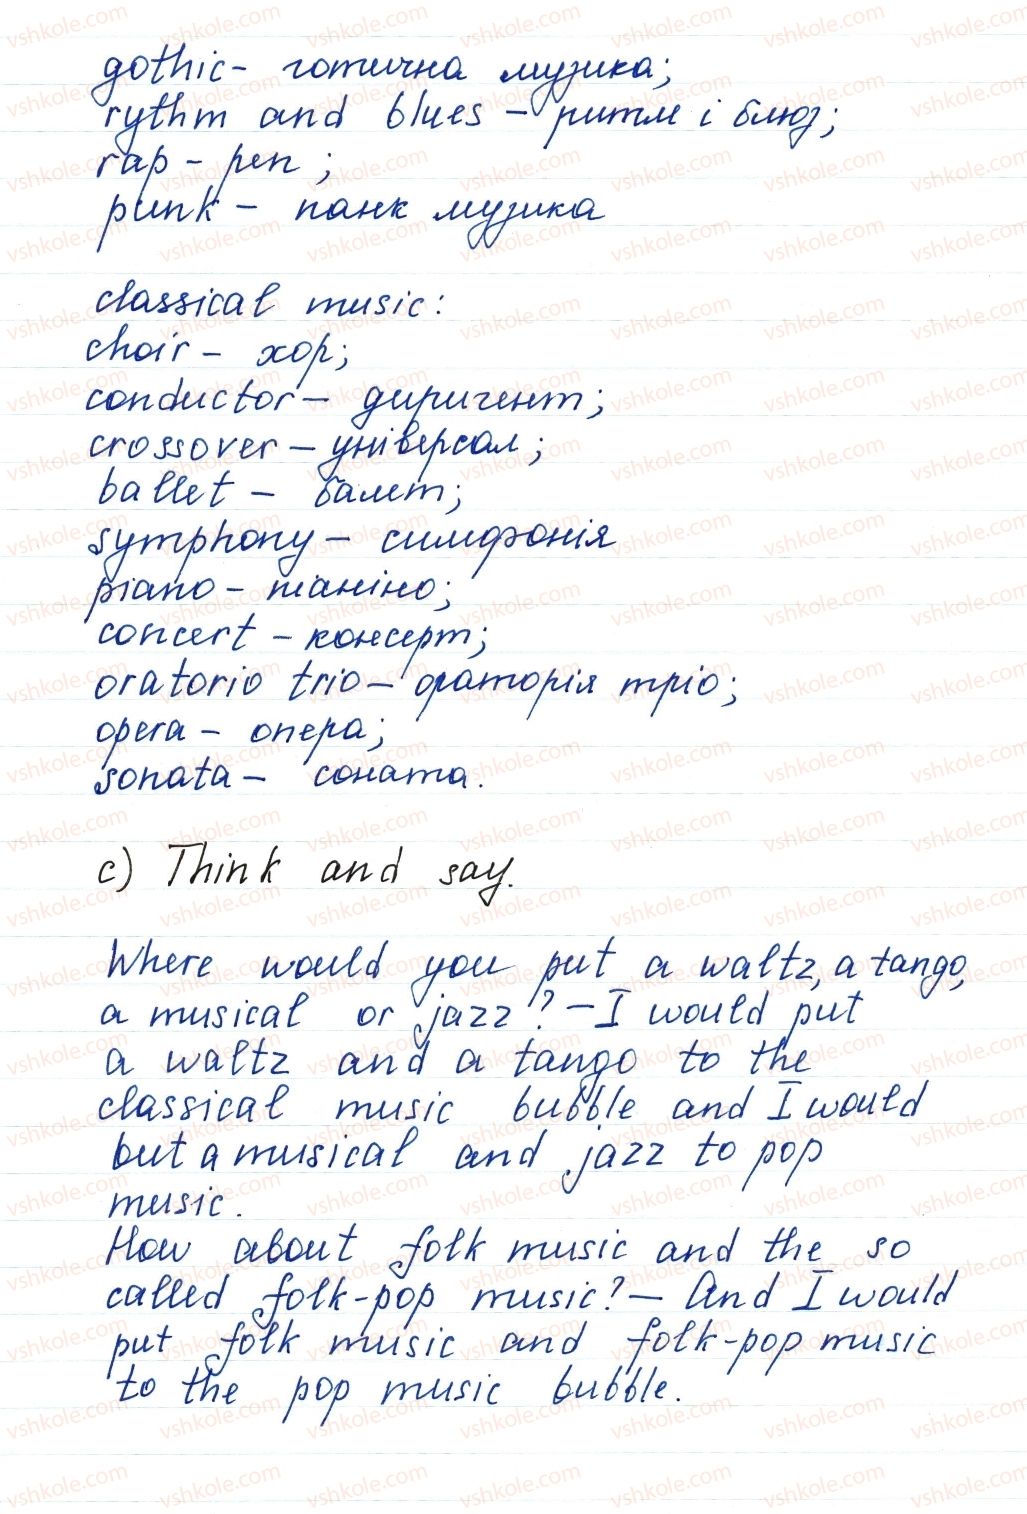 gothic - готична музика;
rythm and blues - ритм і блюз;
rap - реп;
punk - панк музика
classical music:
choir - хор;
conductor - диригент;
crossover - універсал;
ballet - балет;
symphony - симфонія
piano - піаніно;
concert - консерт;
oratorio trio - ораторія тріо;
opera - опера;
sonata - соната.
c) Think and say.
Where would you put a waltz, a tango,
a musical or jazz? - I would put
a waltz and a tango to the
classical music bubble and I would
but a musical and jazz to pop
music.
How about folk music and the so
called folk-pop music? - And I would
put folk music and folk-pop music
to the pop music bubble.